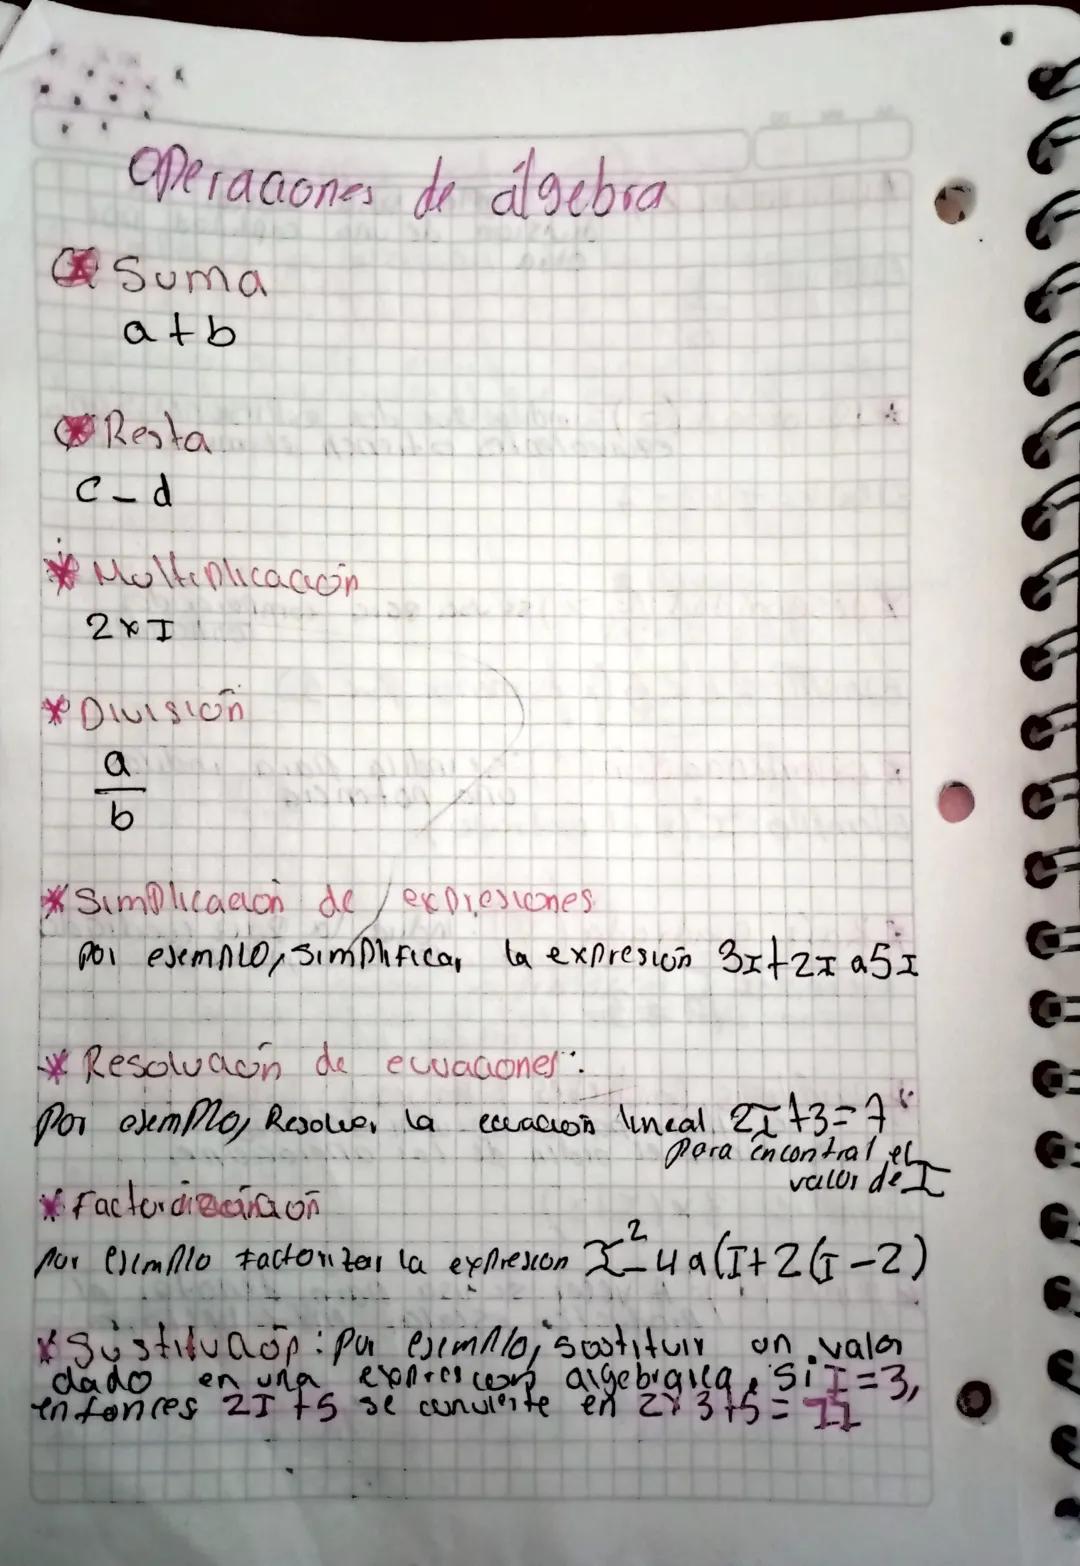 Operaciones de álgebra
* Suma
a+b
* Resta
c-d
* Multiplicación
2xI
* División
a
b
* Simplicación de expresiones
por ejemplo, simplificar la expresión 3I+2I a5I
* Resolución de ecuaciones:
Por ejemplo, Resolver la ecuación lineal 2I+3=7
para encontral el
valor de I
* Factordización
por ejemplo factorizar la expresion I²-4a(I+2(I-2)
* Sustitución: por ejemplo, sostituir un valor
dado en una expresion algebraica, Si I=3,
entonces 2I+5 se convierte en 2x3+5=11